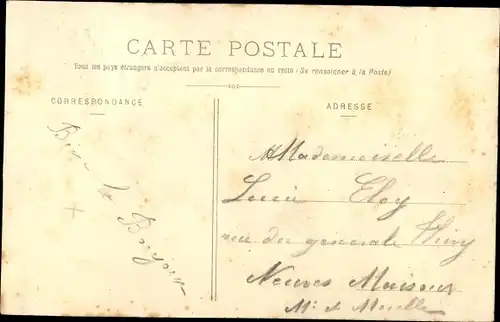 CARTE POSTALE
Tous les pays étrangers n'acceptent pas la correspondance au recto (Se renseigner à la Poste)
CORRESPONDANCE
ADRESSE
Mademoiselle
Eloy
rue du generale Thiry
Neuves Maisons
Mthe et Moselle